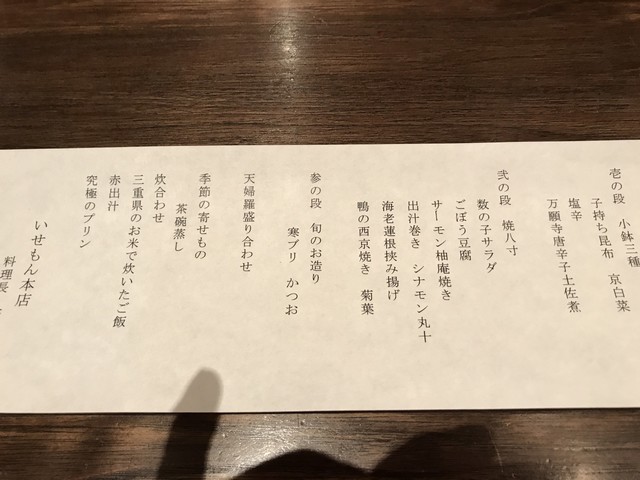 壱の段　小鉢三種
子持ち昆布　京白菜
塩辛
万願寺唐辛子土佐煮
弐の段　焼八寸
数の子サラダ
ごぼう豆腐
サーモン柚庵焼き
出汁巻き　シナモン丸十
海老蓮根挟み揚げ
鴨の西京焼き　菊葉
参の段　旬のお造り
寒ブリ　かつお
天婦羅盛り合わせ
季節の寄せもの
茶碗蒸し
炊合わせ
三重県のお米で炊いたご飯
赤出汁
究極のプリン
いせもん本店
料理長